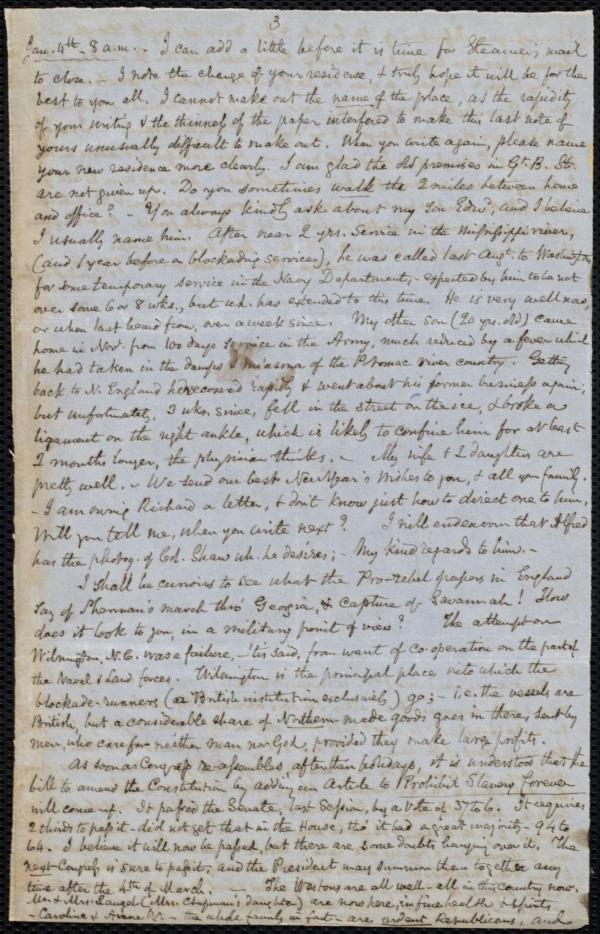 3
Jan. 4th - 8 a.m. - I can add a little before it is time for Steamer's mail
to close. - I note the change of your residence, & truly hope it will be for the
best to you all. I cannot make out the name of the place, as the rapidity
of your writing & the thinness of the paper interfered to make this last note of
yours unusually difficult to make out. When you write again, please name
your new residence more clearly. I am glad the old premises in Gt. B. St.
are not given up. Do you sometimes walk the 2 miles between home
and office? - You always kindly ask about my Son Edwd, and I believe
I usually name him. After near 2 yrs. Service in the Mississippi river,
(and 1 year before in blockading service), he was called last Augt. to Washington
for some temporary service in the Navy Department, - expected by him to be not
over some 6 or 8 wks., but wh. has extended to this time. He is very well now,
or when last heard from, over a week since. My other Son (20 yrs. old) came
home in Novr. from 100 days Service in the Army, much reduced by a fever which
he had taken in the damps & miasma of the Potomac river country. Getting
back to N. England he recovered rapidly & went about his former business again,
but unfortunately, 3 wks. since, fell in the street on the ice, & broke a
ligament on the right ankle, which is likely to confine him for at least
2 months longer, the physician thinks. - My wife & 2 daughters are
pretty well. - We send our best New Year's wishes to you, & all your family.
- I am owing Richard a letter, & don't know just how to direct one to him,
Will you tell me, when you write next? I will endeavour that Alfred
has the photog. of Col. Shaw wh. he desires; - My kind regards to him. -
I shall be curious to see what the Pro-rebel papers in England
say of Sherman's march thro' Georgia, & capture of Savannah! How
does it look to you, in a military point of view? The attempt on
Wilmington, N.C. was a failure, - 'tis said, from want of co-operation on the part of
the Naval & land forces. Wilmington is the principal place into which the
blockade-runners (a British institution exclusively) go; - i.e. the vessels are
British, but a considerable share of Northern made goods goes in there, sent by
men, who care for neither man nor God, provided they make large profits.
As soon as Congress re-assembles, after the holidays, it is understood that the
bill to amend the Constitution by adding an Article to Prohibit Slavery forever
will come up. It passed the Senate, last Session, by a vote of 37 to 6. It requires
2 thirds to pass it - did not get that in the House, tho' it had a great majority - 94 to
64. I believe it will now be passed, but there are some doubts hanging over it. The
next Congress is sure to pass it, and the President may summon them together any
time after the 4th of March. - The Westons are all well - all in this country now.
Mr. & Mrs. Laugel (Mrs. Chapman's daughter) are now here, in fine health & spirits
- Caroline & Anne W. - the whole family in fact - are ardent Republicans, and